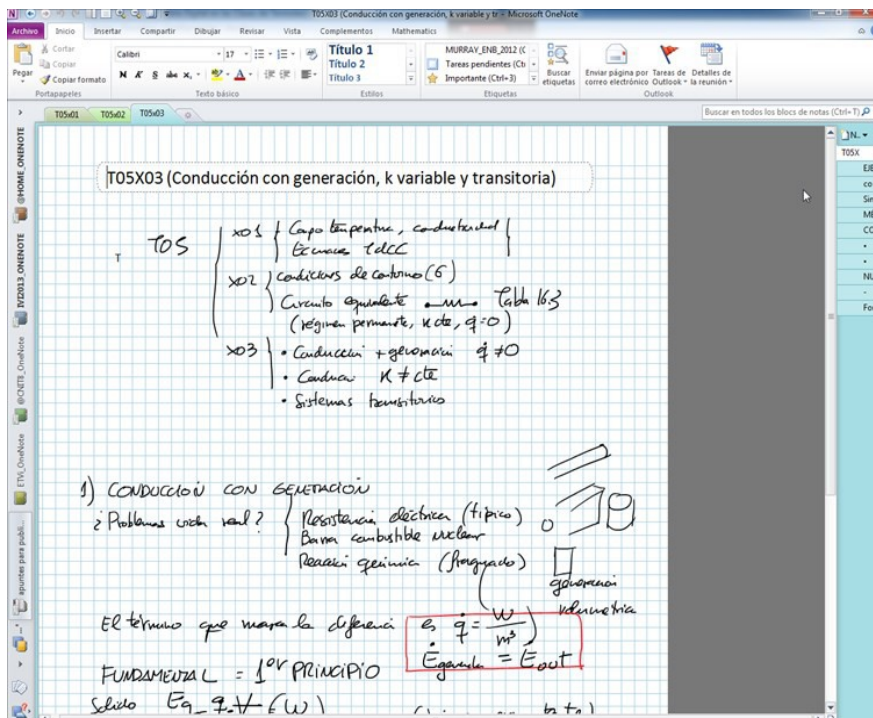 T05X03 (Conducción con generación, k variable y tr - Microsoft OneNote
Archivo Inicio Insertar Compartir Dibujar Revisar Vista Complementos Mathematics
Pegar
Cortar
Copiar
Copiar formato
Portapapeles
Calibri 17
N K S abc x,
Texto básico
Título 1
Título 2
Título 3
Estilos
MURRAY_ENB_2012 (C
Tareas pendientes (Ct
Importante (Ctrl+3)
Buscar etiquetas
Etiquetas
Enviar página por correo electrónico
Tareas de Outlook
Detalles de la reunión
Outlook
T05x01 T05x02 T05x03
Buscar en todos los blocs de notas (Ctrl+T)
@HOME_ONENOTE
@CNITB_OneNote
ETVI_OneNote
apuntes para publi...
T05X
EJE
co
Sir
CO
NU
Fo
T05X03 (Conducción con generación, k variable y transitoria)
T05
x01 Campo temperatura, conductividad
x02 Condiciones de contorno (6)
Circuito equivalente Tabla 16.3
(régimen permanente, k cte, q̇=0)
x03 • Conducción + generación q̇ ≠ 0
• Conducción K ≠ cte
• Sistemas transitorios
1) CONDUCCION CON GENERACIÓN
¿Problemas vida real? Resistencia eléctrica (típico)
Barra combustible nuclear
Reacción química (fraguado)
generación
volumetrica
El término que marca la diferencia es q̇ = W/m³
Ėgenerada = Ėout
FUNDAMENTAL = 1er PRINCIPIO
Solido